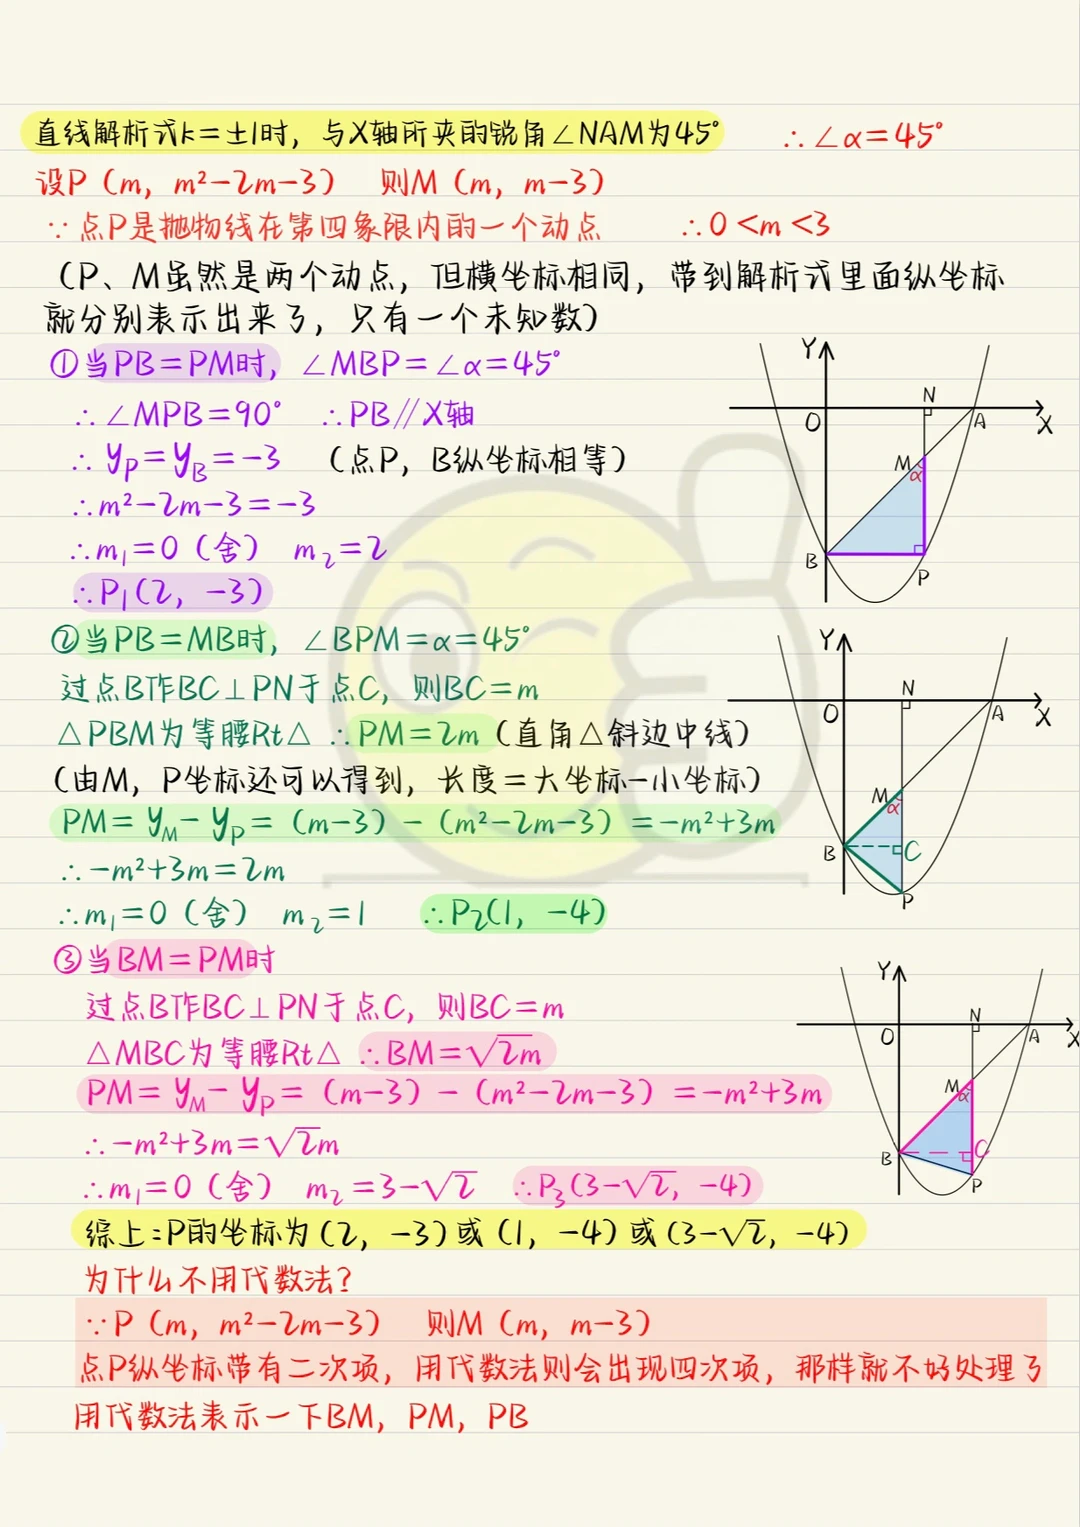 直线解析式k=±1时，与X轴所夹的锐角∠NAM为45° ∴∠α=45°
设P（m，m²-2m-3） 则M（m，m-3）
∵点P是抛物线在第四象限内的一个动点 ∴0<m<3
（P、M虽然是两个动点，但横坐标相同，带到解析式里面纵坐标
就分别表示出来了，只有一个未知数）
①当PB=PM时，∠MBP=∠α=45°
∴∠MPB=90° ∴PB∥X轴
∴yP=yB=-3 （点P，B纵坐标相等）
∴m²-2m-3=-3
∴m₁=0（舍） m₂=2
∴P₁(2，-3)
Y
N
O
A
X
M
α
B
P
②当PB=MB时，∠BPM=α=45°
过点B作BC⊥PN于点C，则BC=m
△PBM为等腰Rt△ ∴PM=2m（直角△斜边中线）
（由M，P坐标还可以得到，长度=大坐标-小坐标）
PM=yM-yP=（m-3）-（m²-2m-3）=-m²+3m
∴-m²+3m=2m
∴m₁=0（舍） m₂=1 ∴P₂(1，-4)
Y
N
O
A
X
M
α
B
C
P
③当BM=PM时
过点B作BC⊥PN于点C，则BC=m
△MBC为等腰Rt△ ∴BM=√2m
PM=yM-yP=（m-3）-（m²-2m-3）=-m²+3m
∴-m²+3m=√2m
∴m₁=0（舍） m₂=3-√2 ∴P₃(3-√2，-4)
Y
N
O
A
X
M
α
B
C
P
综上：P的坐标为(2，-3)或(1，-4)或(3-√2，-4)
为什么不用代数法？
∵P（m，m²-2m-3） 则M（m，m-3）
点P纵坐标带有二次项，用代数法则会出现四次项，那样就不好处理了
用代数法表示一下BM，PM，PB